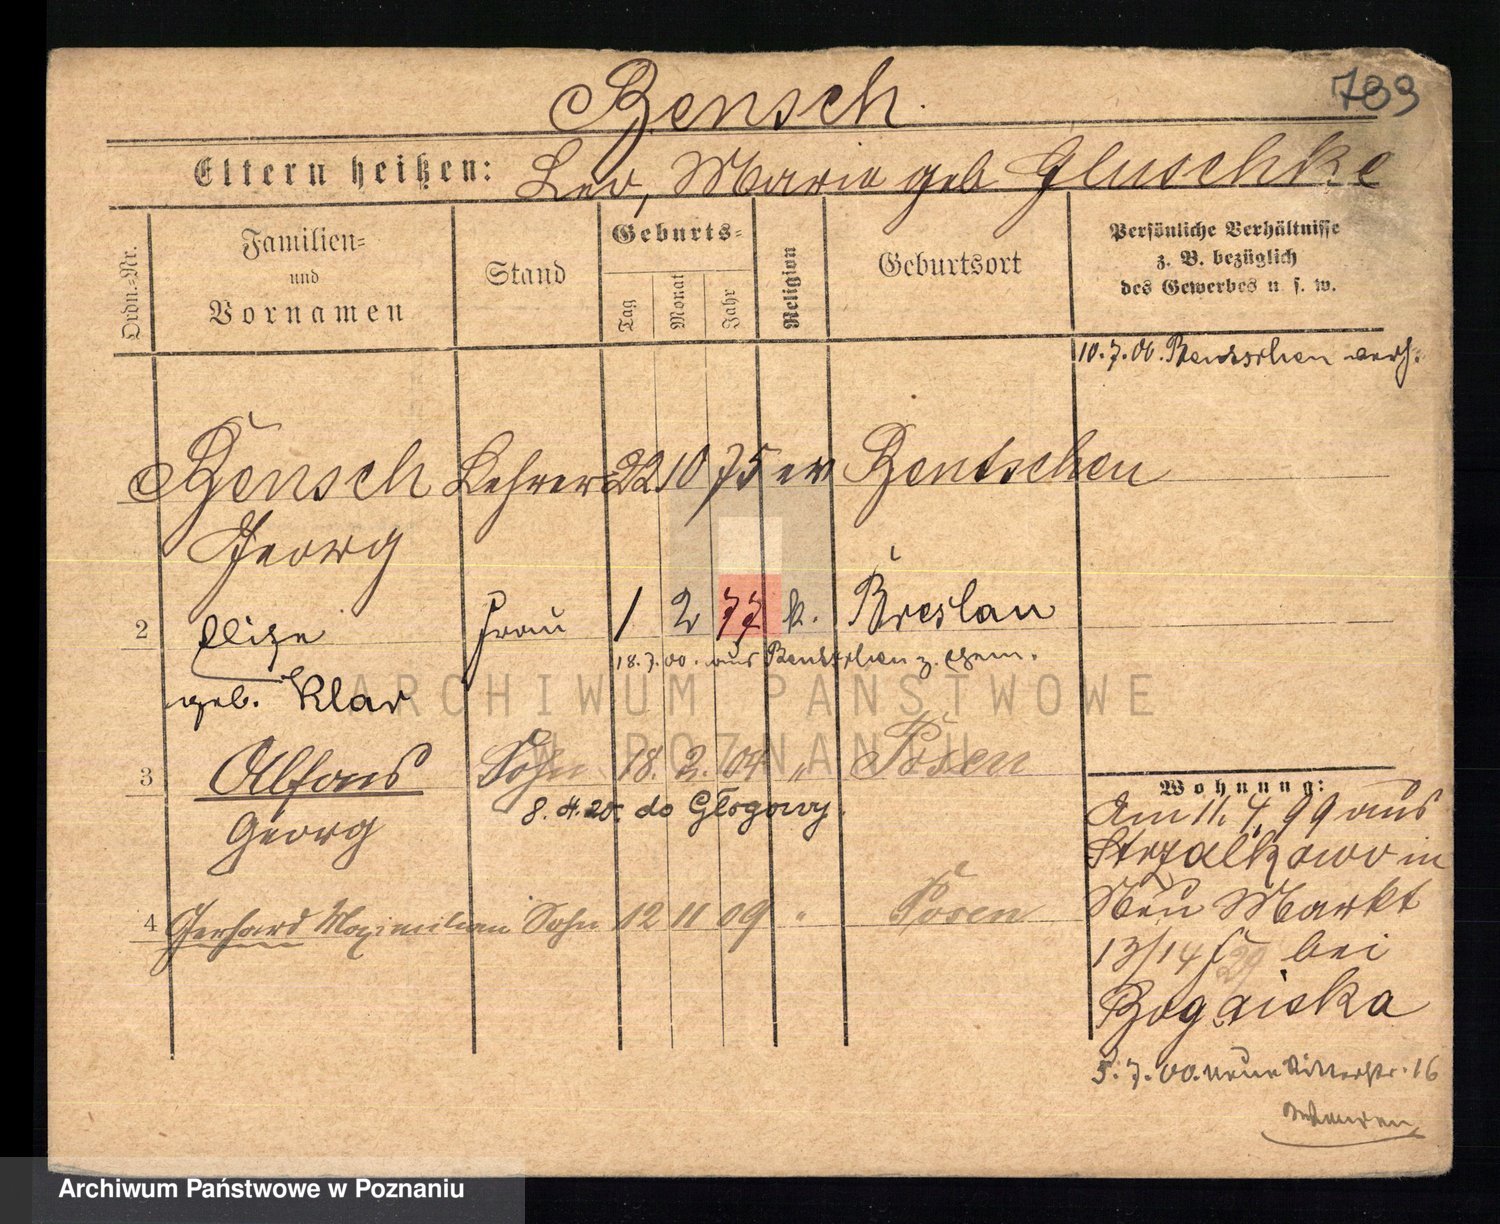 Bensch.
783
Eltern heißen: Leo, Marie geb Gluschke
Ordn.-Nr.
Familien-
und
Vornamen
Stand
Geburts-
Tag
Monat
Jahr
Religion
Geburtsort
Persönliche Verhältnisse
z. B. bezüglich
des Gewerbes u. s. w.
10.7.00. Bentschen verh.
Bensch Lehrer 22 10 75 ev Bentschen
Georg
2 Elise Frau 1 2 77 k. Breslau
18.7.00. aus Bentschen z. gem.
geb. Klar
3 Alfons Sohn 18. 2. 04 " Posen
8. 4. 20. do Głogowy.
Georg
4 Gerhard Maximilian Sohn 12 11 09 " Posen
Wohnung:
Am 11. 4. 99 aus
Strzalkowo in
Neu Markt
13/14 bei
5.7.00. neue Ritterstr. 16
ARCHIWUM PAŃSTWOWE
W POZNANIU
Archiwum Państwowe w Poznaniu